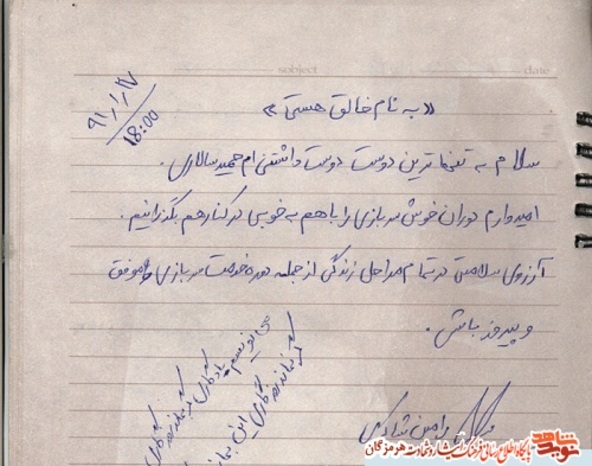 subject
date
۹۱/۱/۲۷
18:00
«به نام خالق هستی»
سلام به تنها ترین دوست دوست داشتنی ام حمید سالاری.
امیدوارم دوران خوش سربازی را با هم به خوبی در کنار هم بگذرانیم.
آرزوی سلامتی در تمام مراحل زندگی از جمله دوره خدمت سربازی و موفق
و پیروز باشی.
می نویسم یادگاری
رامین
نوید شاهد
پایگاه اطلاع رسانی فرهنگ ایثار و شهادت هرمزگان